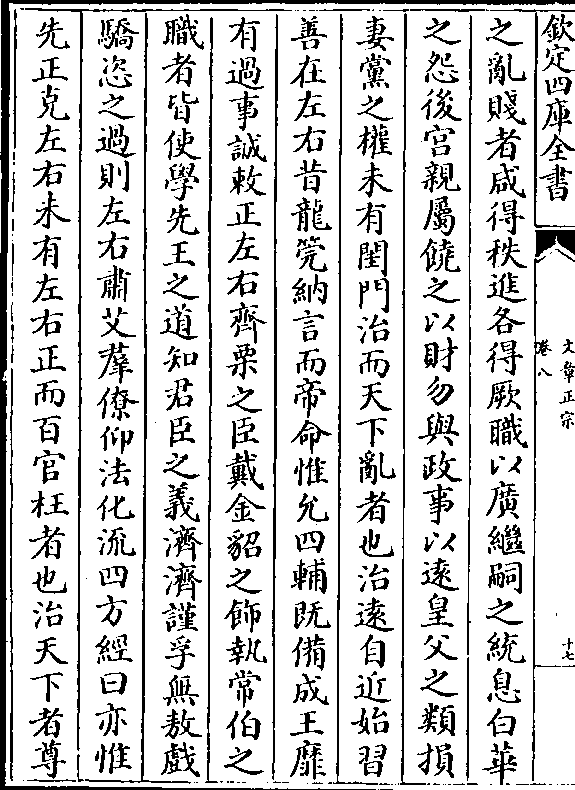 欽定四庫全書
文章正宗
卷八
十七
之亂賤者咸得秩進各得厥職以廣繼嗣之統息白華
之怨後宮親屬饒之以財勿與政事以遠皇父之類損
妻黨之權未有閨門治而天下亂者也治遠自近始習
善在左右昔龍筦納言而帝命惟允四輔既備成王靡
有過事誠敕正左右齊栗之臣戴金貂之飾執常伯之
職者皆使學先王之道知君臣之義濟濟謹孚無敖戲
驕恣之過則左右肅艾羣僚仰法化流四方經曰亦惟
先正克左右未有左右正而百官枉者也治天下者尊